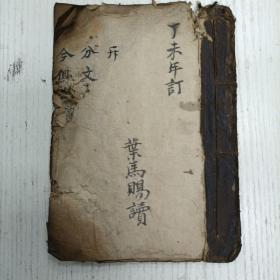 丁未年訂
葉馬賜讀
斤
分文
今